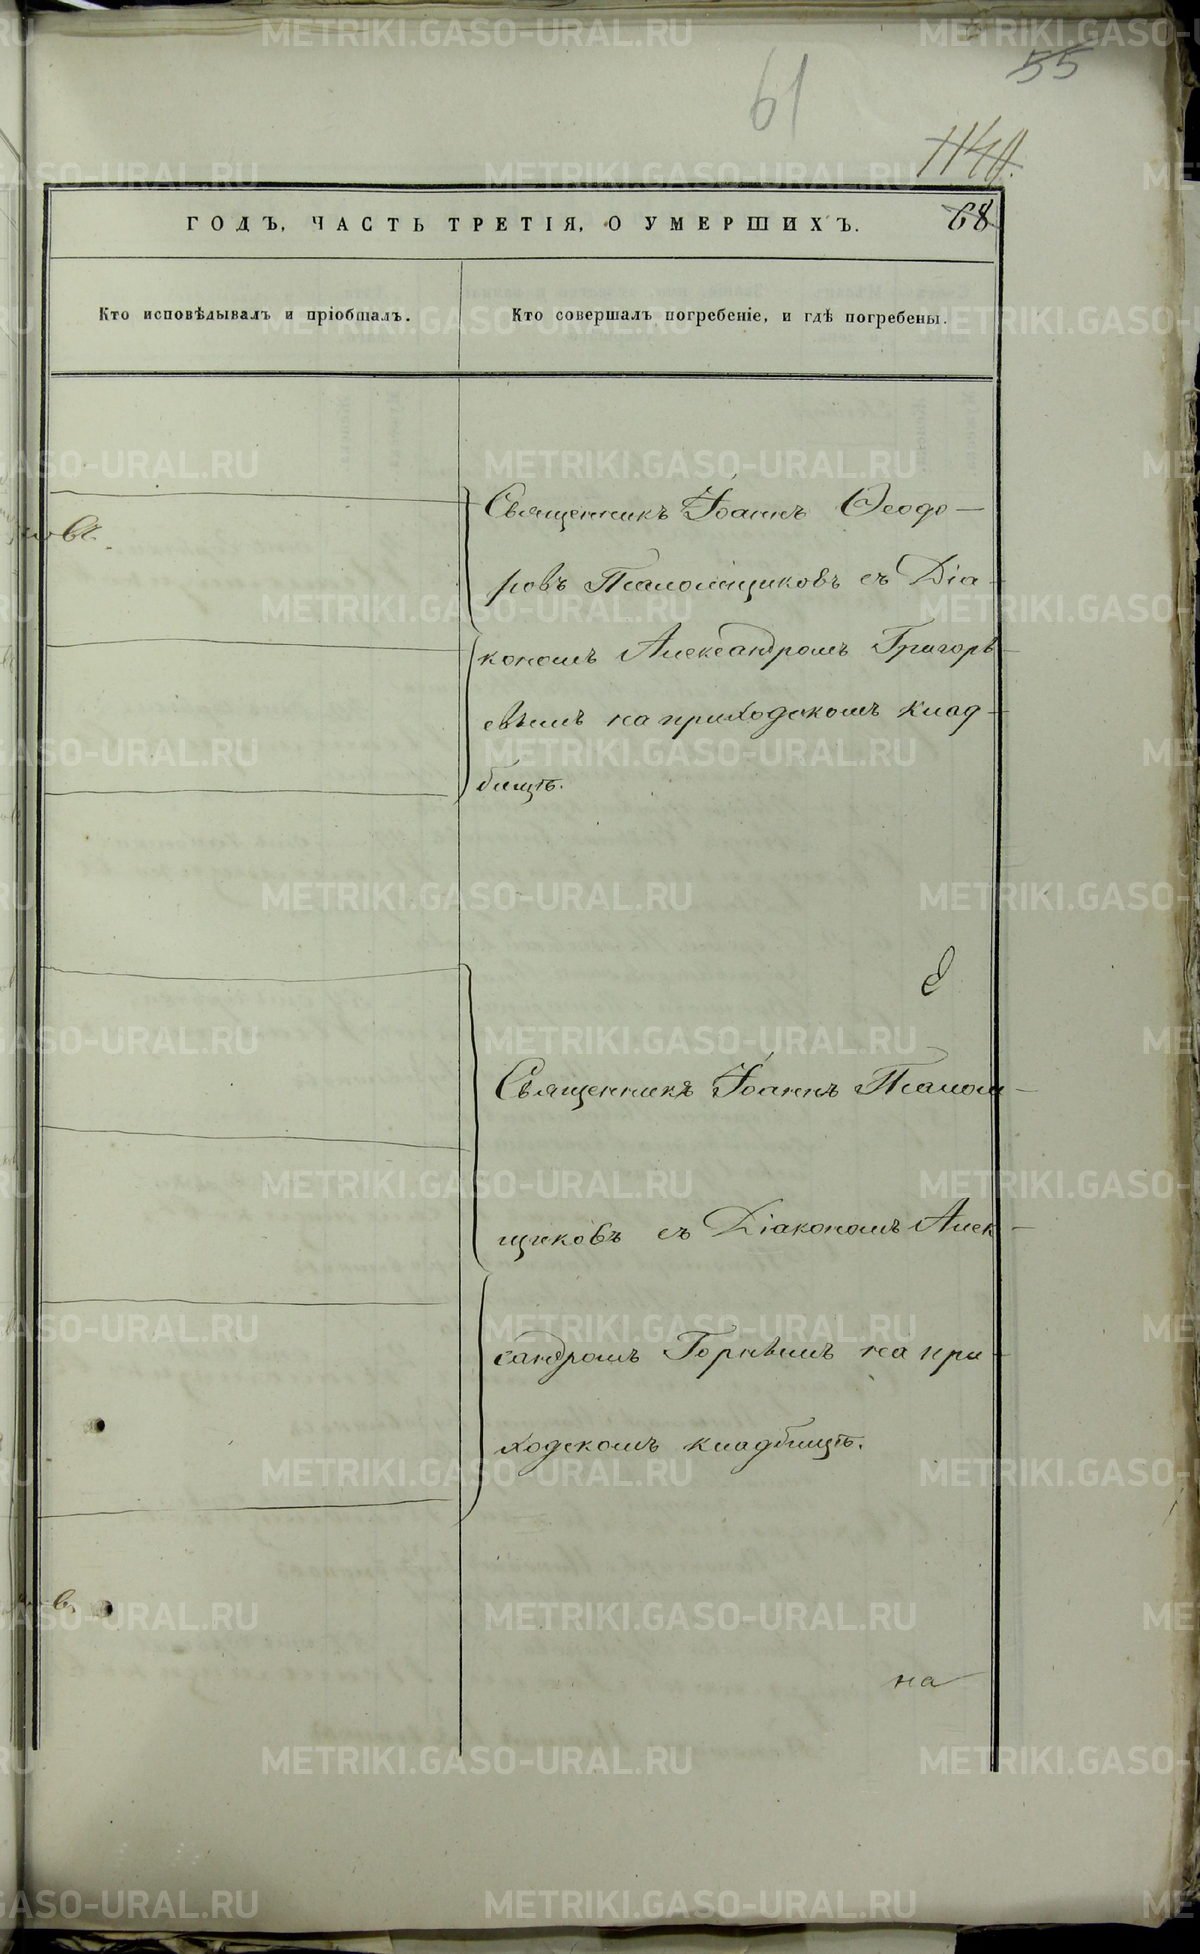 61
55
1140.
ГОДЪ, ЧАСТЬ ТРЕТІЯ, О УМЕРШИХЪ.
68
Кто исповѣдывалъ и пріобщалъ.
Кто совершалъ погребеніе, и гдѣ погребены.
Священникъ Іоаннъ Ѳеодо-
ровъ Псаломщиковъ съ Діа-
кономъ Александромъ Григорь-
евымъ на приходскомъ клад-
бищѣ.
Священникъ Іоаннъ Псалом-
щиковъ съ Діакономъ Алек-
сандромъ Горнымъ на при-
ходскомъ кладбищѣ.
на
METRIKI.GASO-URAL.RU